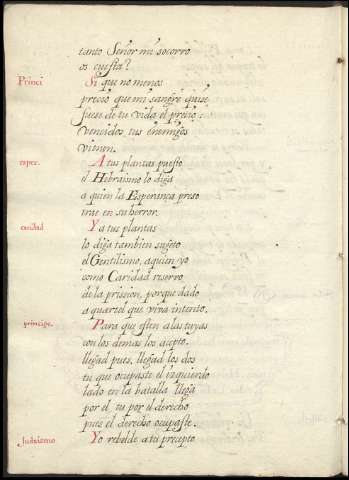 tanto Señor mi socorro
os cuesta?
Princi Si que no menos
precio que mi sangre quise
fuese de tu vida el presio:
vencidos tus enemigos
vienen.
esper. A tus plantas puesto
el Hebraismo lo diga
a quien la Esperança preso
trae en su herror.
caridad Ya tus plantas
lo diga tambien sugeto
el Gentilismo, aquien yo
como Caridad reservo
de la prision, porque dado
a quartel que viva intento.
principe. Para que esten alas tuyas
con los demas los acepto.
llegad pues, llegad los dos
tu que ocupaste el izquierdo
lado en la batalla llega
por el, tu por el derecho
pues el derecho ocupaste.
Judaismo Yo rebelde a tu precepto